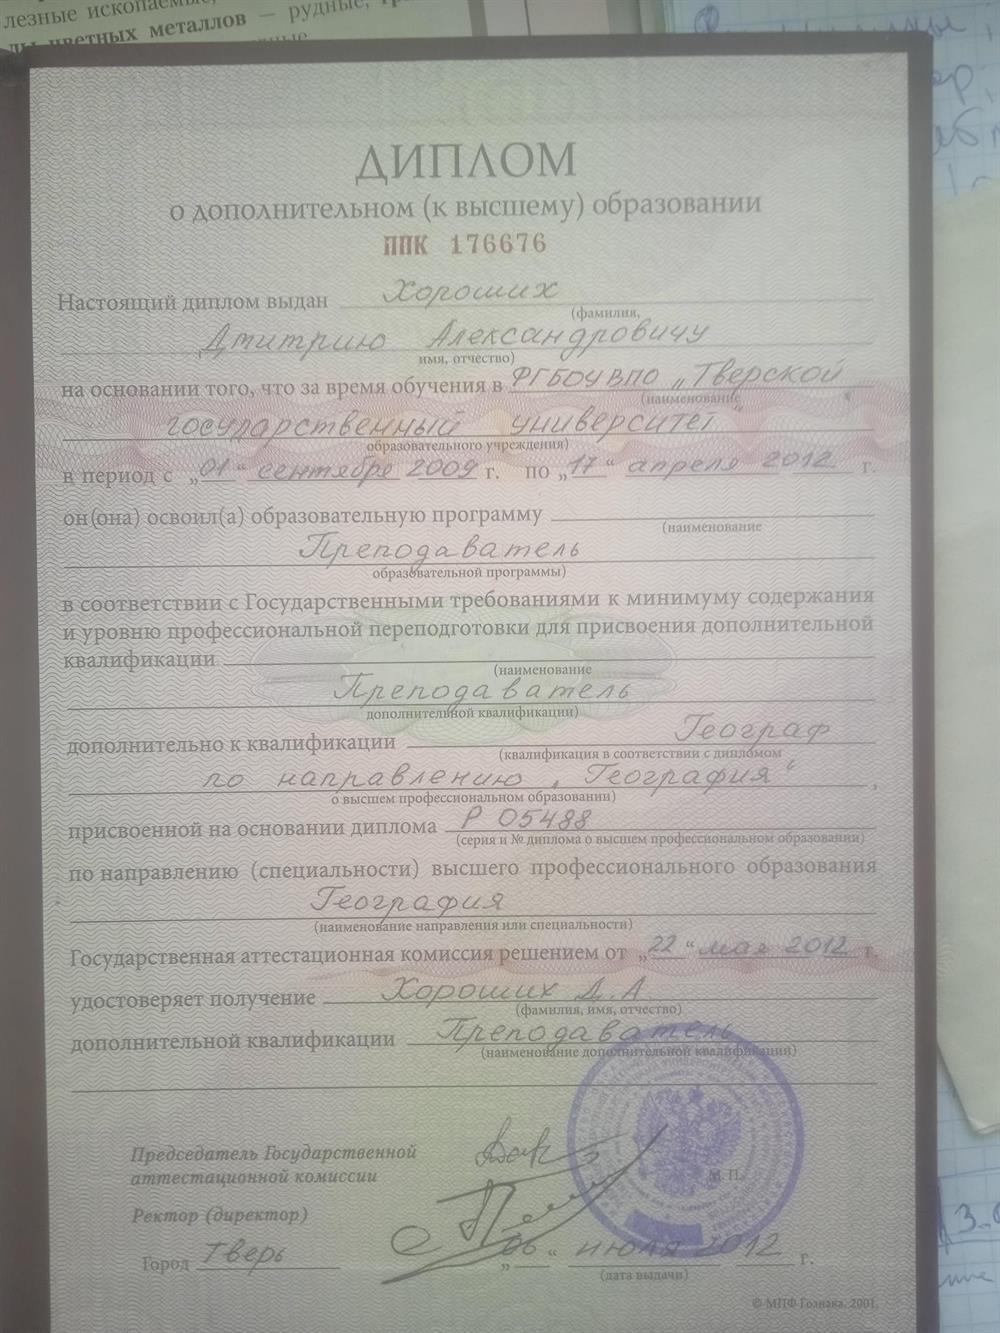 лезные ископаемые,
цветных металлов — рудные,
ДИПЛОМ
о дополнительном (к высшему) образовании
ППК 176676
Настоящий диплом выдан Хороших
(фамилия,
Дмитрию Александровичу
имя, отчество)
на основании того, что за время обучения в ФГБОУ ВПО „Тверской
(наименование
государственный университет"
образовательного учреждения)
в период с „01" сентября 2009 г. по „17" апреля 2012 г.
он(она) освоил(а) образовательную программу
(наименование
Преподаватель
образовательной программы)
в соответствии с Государственными требованиями к минимуму содержания
и уровню профессиональной переподготовки для присвоения дополнительной
квалификации
(наименование
Преподаватель
дополнительной квалификации)
дополнительно к квалификации Географ
(квалификация в соответствии с дипломом
по направлению „География",
о высшем профессиональном образовании)
присвоенной на основании диплома Р 05488
(серия и № диплома о высшем профессиональном образовании)
по направлению (специальности) высшего профессионального образования
География
(наименование направления или специальности)
Государственная аттестационная комиссия решением от „22" мая 2012 г.
удостоверяет получение Хороших Д.А
(фамилия, имя, отчество)
дополнительной квалификации Преподаватель
(наименование дополнительной квалификации)
Председатель Государственной
аттестационной комиссии
М. П.
Ректор (директор)
Город Тверь „06" июля 2012 г.
(дата выдачи)
© МПФ Гознака. 2001.